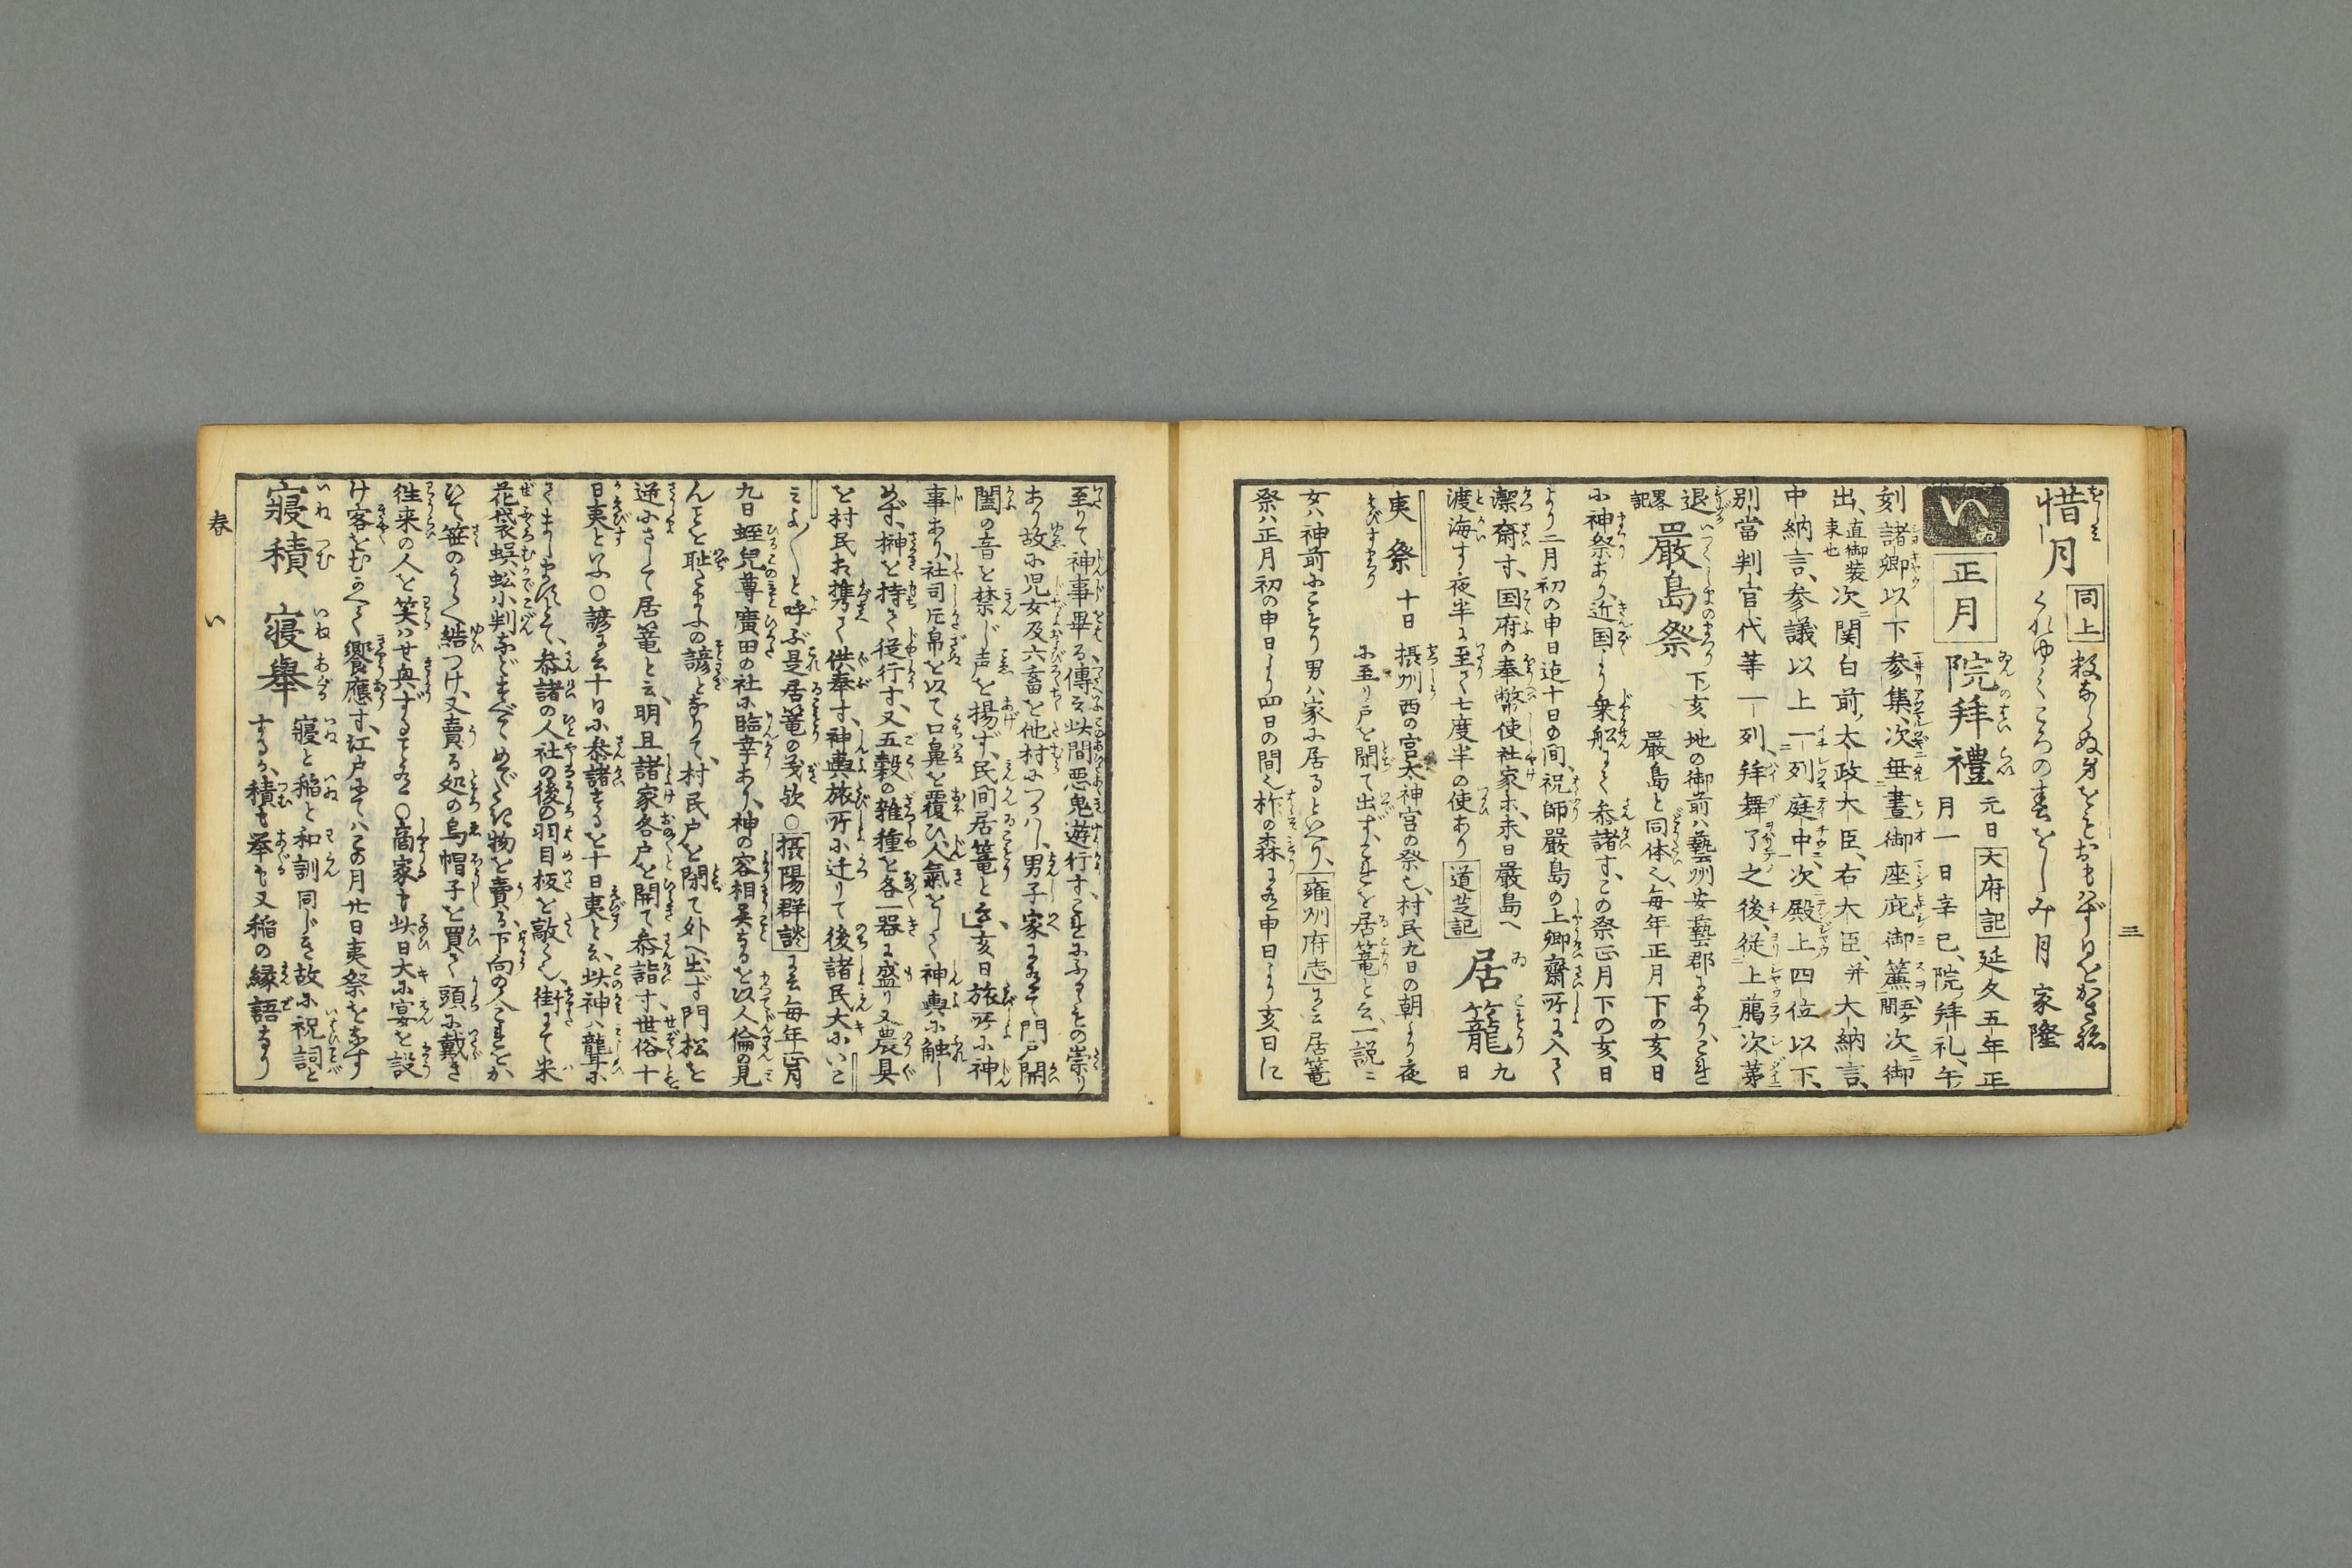 三
惜月 同上 数ならぬ身をともおもはず日をかさね
くれゆくころの春をしみ月 家隆
い 正月 院拜禮 元日 大府記 延久五年正
月一日辛巳、院拜礼、午
刻諸卿以下参集、次垂晝御座庇御簾吾ヶ間次御
出、直御装束也 次関白前太政大臣、右大臣、并大納言、
中納言、参議以上一列庭中、次殿上四位以下、
別當判官代等一列、拜舞了之後、従上﨟次第
退 畧記 嚴島祭 下亥 地の御前ハ藝州安藝郡にあり、これ
嚴島と同体也、毎年正月下の亥日
に神祭あり、近国より乗船にて参諸す、この祭正月下の亥日
より二月初の申日迄十日の間、祝師嚴島の上卿齋所に入て
潔齋す、国府の奉幣使社家ホ、未日嚴島へ
渡海す夜半に至て七度半の使あり 道芝記 居籠 九日
夷祭 十日 摂州西の宮太神宮の祭也、村民九日の朝より夜
に至り戸を閉て出ず、これを居篭と云、一説ニ
女ハ神前にこもり男ハ家に居るといへり、雍州府志に云居篭
祭ハ正月初の申日より四日の間也柞の森に在申日より亥日に
至りて神事畢る傳云此間悪鬼遊行す、これにふるゝもの祟り
あり故に児女及六畜を他村につかハし、男子家に在て門戸開
闔の音を禁じ声を揚ず、民间居篭と云、亥日旅所に神
事あり、社司疋帛を以て口鼻を覆ひ人氣をして神輿に触し
めず、榊を持て従行す、又五穀の雑種を各一器に盛り又農具
を村民ホ携て供奉す、神輿旅所に迁りて後諸民大にいこ
ミよ〳〵と呼ぶ是居篭の義欤○摂陽群談に云毎年正月
九日蛭兒尊廣田の社に臨幸あり、神の容相異なるを以人倫の見
んことを耻たまふの諺となりて、村民戸を閉て外へ出ず門松を
逆にさして居篭と云、明旦諸家各戸を開て参詣す世俗十
日夷といふ○諺に云十日に参諸するを十日夷と云、此神ハ龍聾に
てましますとて、参諸の人社の後の羽目板を敲く也、街にて米
花袋蜈蚣小判などすべてめでたき物を賣る、下向の人これをか
ひて笹のうらへ結つけ、又賣る処の烏帽子を買て頭に戴き
徃来の人を笑ハせ興ずること在○啇家も此日大に宴を設
け客をむかへて饗應す、江戸にてハこの月廿日夷祭をなす
寝積 寝舉 寝と稲と和訓同じき故に祝詞と
するか、積も挙も又稲の縁語なり
春 い